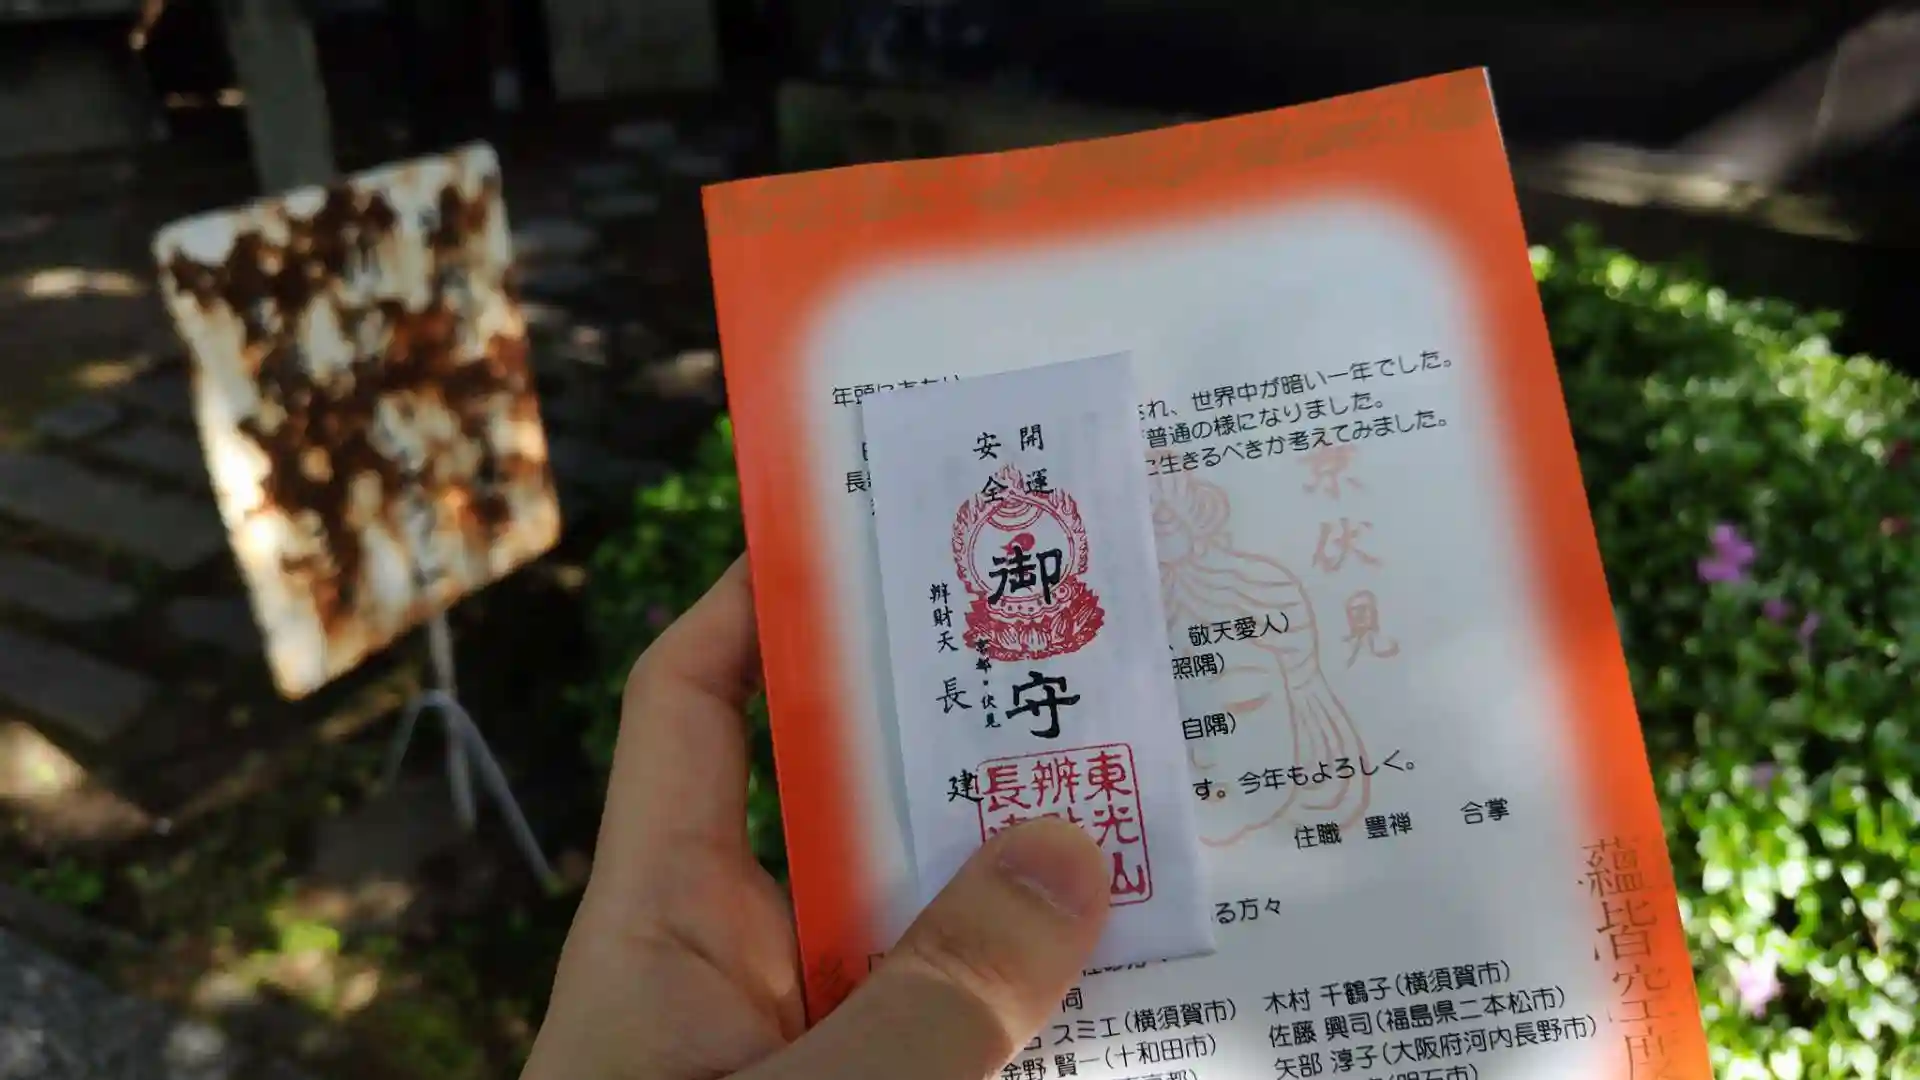 開運
安全
御守
辨財天
京都・伏見
長建
東光山
辨
長
京伏見
年頭にあたり
され、世界中が暗い一年でした。
普通の様になりました。
に生きるべきか考えてみました。
長
、敬天愛人）
照隅）
自隅）
す。今年もよろしく。
住職 豊禅 合掌
る方々
同
スミエ（横須賀市） 木村 千鶴子（横須賀市）
金野 賢一（十和田市） 佐藤 興司（福島県二本松市）
矢部 淳子（大阪府河内長野市）
蘊皆空度